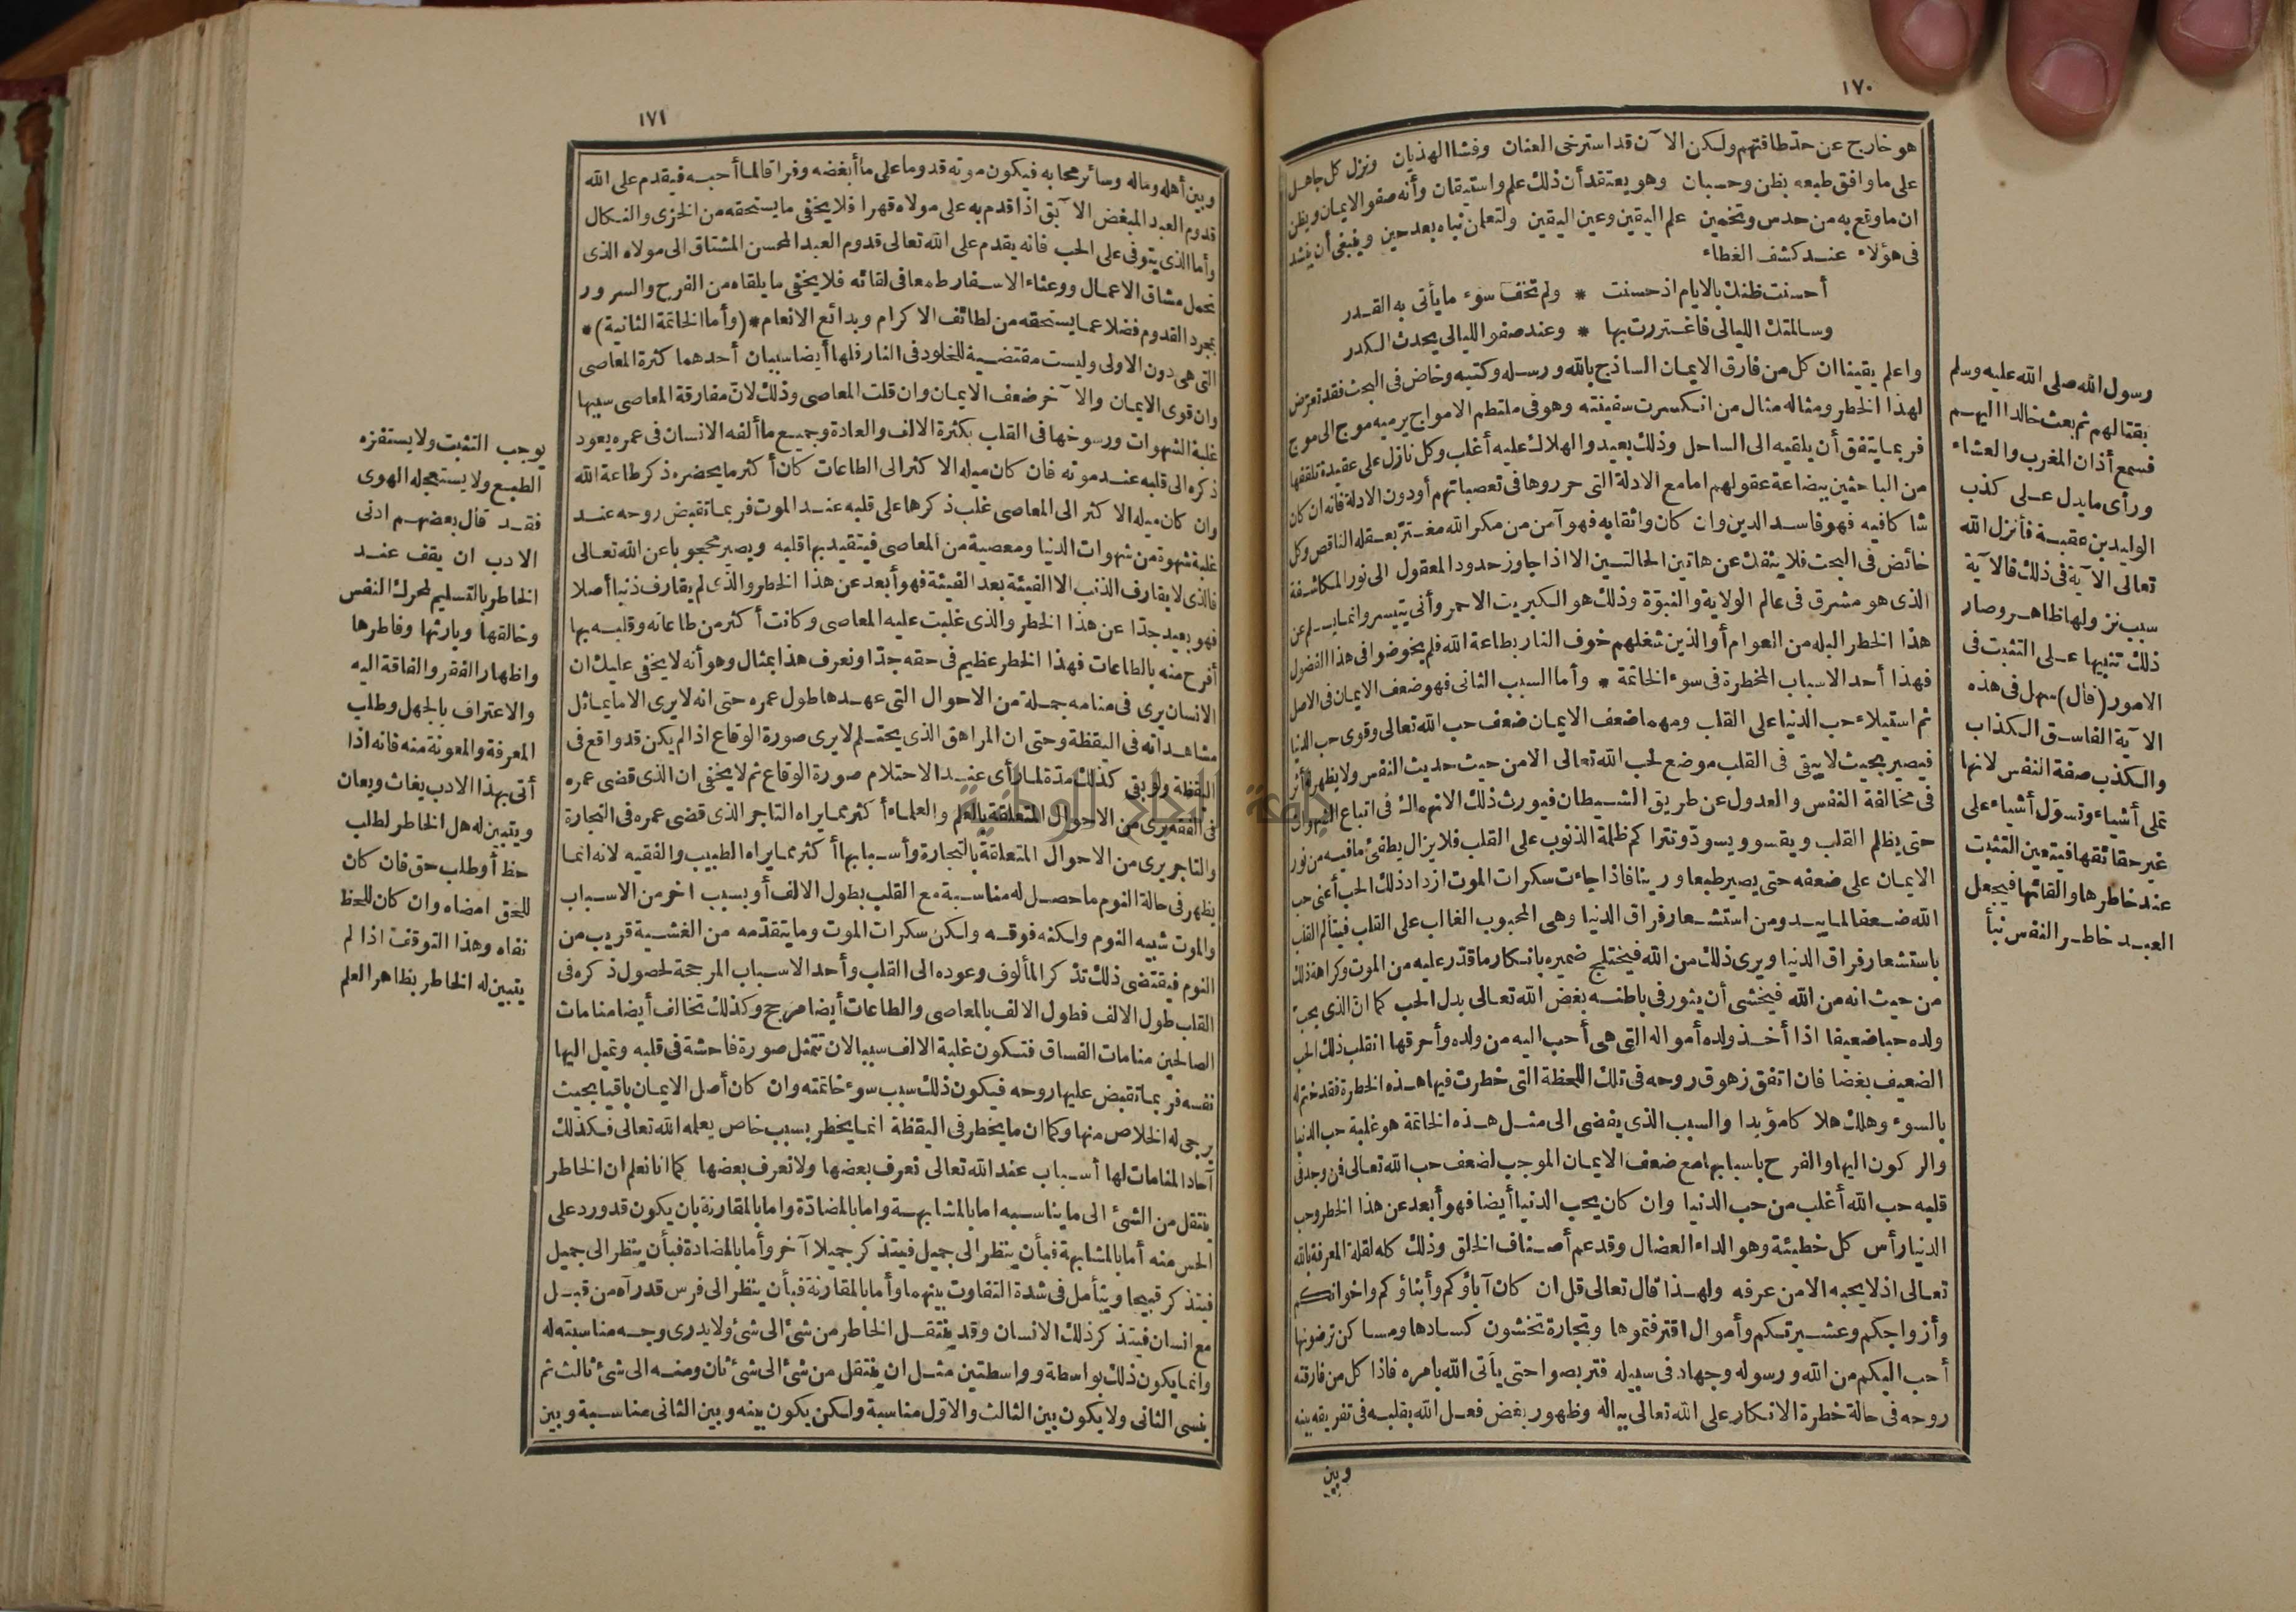 ١٧٠
هو خارج عن حد طاقتهم ولكن الآن قد استرخى العنان وفشا الهذيان ونزل كل جاهل
على ما وافق طبعه بظن وحسبان وهو يعتقد أن ذلك علم واستيقان وأنه صفو الايمان ويظن
ان ما وقع به من حدس وتخمين علم اليقين وعين اليقين ولتعلمن نبأه بعد حين وينبغى أن ينشد
فى هؤلاء عند كشف الغطاء
أحسنت ظنك بالايام اذ حسنت * ولم تخف سوء ما يأتى به القدر
وسالمتك الليالى فاغتررت بها * وعند صفو الليالى يحدث الكدر
واعلم يقينا ان كل من فارق الايمان الساذج بالله ورسله وكتبه وخاض فى البحث فقد تعرّض
لهذا الخطر ومثاله مثال من انكسرت سفينته وهو فى ملتطم الامواج يرميه موج الى موج
فربما يتفق أن يلقيه الى الساحل وذلك بعيد والهلاك عليه أغلب وكل نازل على عقيدة تلقفها
من الباحثين ببضاعة عقولهم اما مع الادلة التى حرروها فى تعصباتهم أو دون الادلة فانه ان كان
شاكا فيه فهو فاسد الدين وان كان واثقا به فهو آمن من مكر الله مغتر بعقله الناقص وكل
خائض فى البحث فلا ينفك عن هاتين الحالتين الا اذا جاوز حدود المعقول الى نور المكاشفة
الذى هو مشرق فى عالم الولاية والنبوّة وذلك هو الكبريت الاحمر وأنى يتيسر وانما يسلم عن
هذا الخطر البله من العوام أو الذين شغلهم خوف النار بطاعة الله فلم يخوضوا فى هذا الفضول
فهذا أحد الاسباب المخطرة فى سوء الخاتمة * وأما السبب الثانى فهو ضعف الايمان فى الاصل
ثم استيلاء حب الدنيا على القلب ومهما ضعف الايمان ضعف حب الله تعالى وقوى حب الدنيا
فيصير بحيث لا يبقى فى القلب موضع لحب الله تعالى الا من حيث حديث النفس ولا يظهر له أثر
فى مخالفة النفس والعدول عن طريق الشيطان فيورث ذلك الانهماك فى اتباع الشهوات
حتى يظلم القلب ويقسو ويسودّ وتتراكم ظلمة الذنوب على القلب فلا يزال يطفئ ما فيه من نور
الايمان على ضعفه حتى يصير طبعا ورينا فاذا جاءت سكرات الموت ازداد ذلك الحب أعنى حب
الله ضعفا لما يبدو من استشعار فراق الدنيا وهى المحبوب الغالب على القلب فيتألم القلب
باستشعار فراق الدنيا ويرى ذلك من الله فيختلج ضميره بانكار ما قدّر عليه من الموت وكراهة ذلك
من حيث انه من الله فيخشى أن يثور فى باطنه بغض الله تعالى بدل الحب كما انّ الذى يحب
ولده حبا ضعيفا اذا أخذ ولده أمواله التى هى أحب اليه من ولده وأحرقها انقلب ذلك الحب
الضعيف بغضا فان اتفق زهوق روحه فى تلك اللحظة التى خطرت فيها هذه الخطرة فقد ختم له
بالسوء وهلك هلاكا مؤبدا والسبب الذى يفضى الى مثل هذه الخاتمة هو غلبة حب الدنيا
والركون اليها والفرح باسبابها مع ضعف الايمان الموجب لضعف حب الله تعالى فمن وجد فى
قلبه حب الله أغلب من حب الدنيا وان كان يحب الدنيا أيضا فهو أبعد عن هذا الخطر وحب
الدنيا رأس كل خطيئة وهو الداء العضال وقد عم أصناف الخلق وذلك كله لقلة المعرفة بالله
تعالى اذ لا يحبه الا من عرفه ولهذا قال تعالى قل ان كان آباؤكم وأبناؤكم واخوانكم
وأزواجكم وعشيرتكم وأموال اقترفتموها وتجارة تخشون كسادها ومساكن ترضونها
أحب اليكم من الله ورسوله وجهاد فى سبيله فتربصوا حتى يأتى الله بامره فاذا كل من فارقته
روحه فى حالة خطرة الانكار على الله تعالى بباله وظهور بغض فعل الله بقلبه فى تفريقه بينه
وبين
رسول الله صلى الله عليه وسلم
بقتالهم ثم بعث خالدا اليهم
فسمع أذان المغرب والعشاء
ورأى ما يدل على كذب
الوليد بن عقبة فأنزل الله
تعالى الآية فى ذلك فالآية
سبب نزولها ظاهر وصار
ذلك تنبيها على التثبت فى
الامور (قال) سهل فى هذه
الآية الفاسق الكذاب
والكذب صفة النفس لانها
تملى أشياء وتسوّل أشياء على
غير حقائقها فيتعين التثبت
عند خاطرها والقائها فيجعل
العبد خاطر النفس نبأ
١٧١
وبين أهله وماله وسائر محابه فيكون موته قدوما على ما أبغضه وفراقا لما أحبه فيقدم على الله
قدوم العبد المبغض الآبق اذا قدم به على مولاه قهرا فلا يخفى ما يستحقه من الخزى والنكال
وأما الذى يتوفى على الحب فانه يقدم على الله تعالى قدوم العبد المحسن المشتاق الى مولاه الذى
تحمل مشاق الاعمال ووعثاء الاسفار طمعا فى لقائه فلا يخفى ما يلقاه من الفرح والسرور
بمجرد القدوم فضلا عما يستحقه من لطائف الاكرام وبدائع الانعام *(وأما الخاتمة الثانية)*
التى هى دون الاولى وليست مقتضية للخلود فى النار فلها أيضا سببان أحدهما كثرة المعاصى
وان قوى الايمان والآخر ضعف الايمان وان قلت المعاصى وذلك لانّ مفارقة المعاصى سببها
غلبة الشهوات ورسوخها فى القلب بكثرة الالف والعادة وجميع ما ألفه الانسان فى عمره يعود
ذكره الى قلبه عند موته فان كان ميله الاكثر الى الطاعات كان أكثر ما يحضره ذكر طاعة الله
وان كان ميله الاكثر الى المعاصى غلب ذكرها على قلبه عند الموت فربما تقبض روحه عند
غلبة شهوة من شهوات الدنيا ومعصية من المعاصى فيتقيد بها قلبه ويصير محجوبا عن الله تعالى
فالذى لا يقارف الذنب الا الفيئة بعد الفيئة فهو أبعد عن هذا الخطر والذى لم يقارف ذنبا أصلا
فهو بعيد جدّا عن هذا الخطر والذى غلبت عليه المعاصى وكانت أكثر من طاعاته وقلبه بها
أفرح منه بالطاعات فهذا الخطر عظيم فى حقه جدّا ونعرف هذا بمثال وهو أنه لا يخفى عليك ان
الانسان يرى فى منامه جملة من الاحوال التى عهدها طول عمره حتى انه لا يرى الا ما يماثل
مشاهداته فى اليقظة وحتى ان المراهق الذى يحتلم لا يرى صورة الوقاع اذا لم يكن قد واقع فى
اليقظة ولو بقى كذلك مدّة لما رأى عند الاحتلام صورة الوقاع ثم لا يخفى ان الذى قضى عمره
فى الفقه يرى من الاحوال المتعلقة بالعلم والعلماء أكثر مما يراه التاجر الذى قضى عمره فى التجارة
والتاجر يرى من الاحوال المتعلقة بالتجارة وأسبابها أكثر مما يراه الطبيب والفقيه لانه انما
يظهر فى حالة النوم ما حصل له مناسبة مع القلب بطول الالف أو بسبب اخر من الاسباب
والموت شبيه النوم ولكنه فوقه ولكن سكرات الموت وما يتقدّمه من الغشية قريب من
النوم فيقتضى ذلك تذكر المألوف وعوده الى القلب وأحد الاسباب المرجحة لحصول ذكره فى
القلب طول الالف فطول الالف بالمعاصى والطاعات أيضا مرجح وكذلك تخالف أيضا منامات
الصالحين منامات الفساق فتكون غلبة الالف سببا لان تتمثل صورة فاحشة فى قلبه وتميل اليها
نفسه فربما تقبض عليها روحه فيكون ذلك سبب سوء خاتمته وان كان أصل الايمان باقيا بحيث
يرجى له الخلاص منها وكما ان ما يخطر فى اليقظة انما يخطر بسبب خاص يعلمه الله تعالى فكذلك
آحاد المنامات لها أسباب عند الله تعالى نعرف بعضها ولا نعرف بعضها كما انا نعلم ان الخاطر
ينتقل من الشئ الى ما يناسبه اما بالمشابهة واما بالمضادّة واما بالمقارنة بان يكون قد ورد على
الحس منه أما بالمشابهة فبأن ينظر الى جميل فيتذكر جميلا آخر وأما بالمضادة فبأن ينظر الى جميل
فيتذكر قبيحا ويتأمل فى شدة التفاوت بينهما وأما بالمقارنة فبأن ينظر الى فرس قد رآه من قبل
مع انسان فيتذكر ذلك الانسان وقد ينتقل الخاطر من شئ الى شئ ولا يدرى وجه مناسبته له
وانما يكون ذلك بواسطة وواسطتين مثل ان ينتقل من شئ الى شئ ثان ومنه الى شئ ثالث ثم
ينسى الثانى ولا يكون بين الثالث والاوّل مناسبة ولكن يكون بينه وبين الثانى مناسبة وبين
يوجب التثبت ولا يستفزه
الطبع ولا يستعجله الهوى
فقد قال بعضهم ادنى
الادب ان يقف عند
الخاطر بالتسليم لمحرك النفس
وخالقها وبارئها وفاطرها
واظهار الفقر والفاقة اليه
والاعتراف بالجهل وطلب
المعرفة والمعونة منه فانه اذا
أتى بهذا الادب يغاث ويعان
ويتبين له هل الخاطر لطلب
حظ أو طلب حق فان كان
للحق امضاه وان كان للحظ
نفاه وهذا التوقف اذا لم
يتبين له الخاطر بظاهر العلم
جامعة النجاح الوطنية